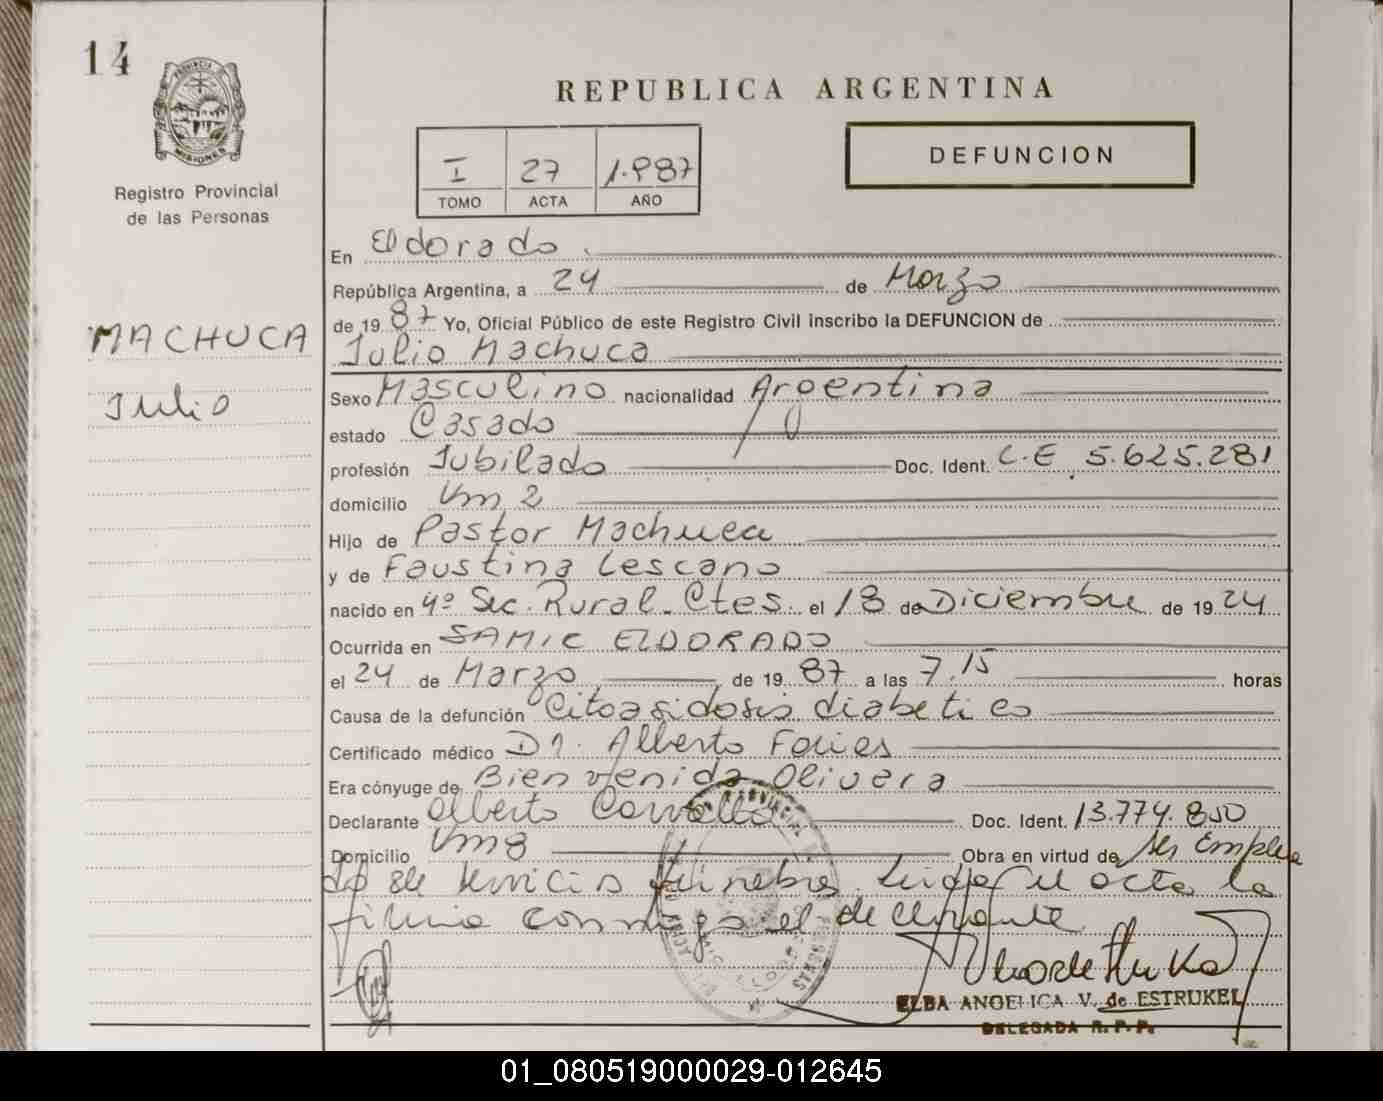 14
PROVINCIA
MISIONES
Registro Provincial
de las Personas
REPUBLICA ARGENTINA
I 27 1.987
TOMO ACTA AÑO
DEFUNCION
MACHUCA
Julio
En Eldorado.
República Argentina, a 24 de Marzo
de 19 87 Yo, Oficial Público de este Registro Civil inscribo la DEFUNCION de
Julio Machuca
Sexo Masculino nacionalidad Argentina
estado Casado
profesión Jubilado Doc. Ident. C.E 5.625.281
domicilio Km 2
Hijo de Pastor Machuca
y de Faustina Lescano
nacido en 4º Sec. Rural. Ctes. el 18 de Diciembre de 19 24
Ocurrida en SAMIC ELDORADO
el 24 de Marzo de 19 87 a las 7,15 horas
Causa de la defunción Citoasidosis diabetico
Certificado médico Dr. Alberto
Era cónyuge de Bienvenida Olivera
Declarante Alberto Carvallo Doc. Ident. 13.774.850
Domicilio Km 8 Obra en virtud de ser Emplea
do de servicios fúnebres. Leida el acta la
firma conmigo el declarante
ELBA ANGELICA V. de ESTRUKEL
DELEGADA R.P.P.
01_080519000029-012645